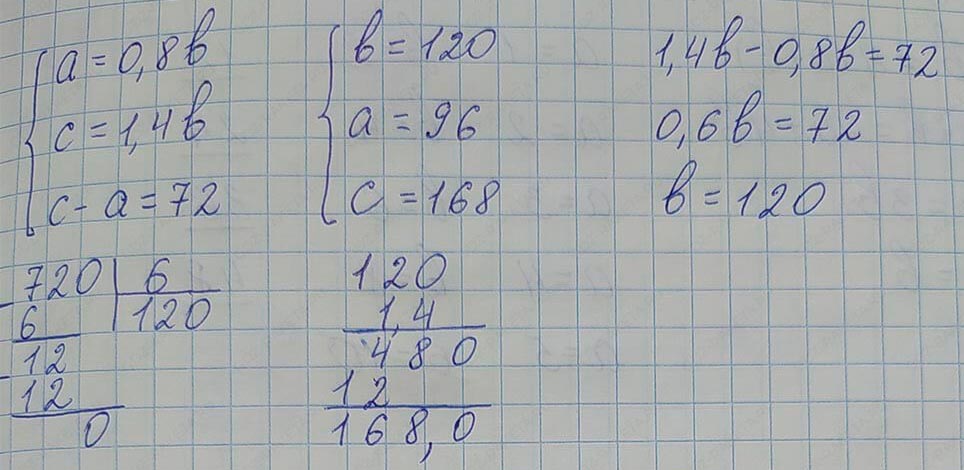 a = 0,8b
c = 1,4b
c - a = 72
b = 120
a = 96
c = 168
1,4b - 0,8b = 72
0,6b = 72
b = 120
- 720 | 6
6 | 120
- 12
12
0
120
1,4
480
12
168,0